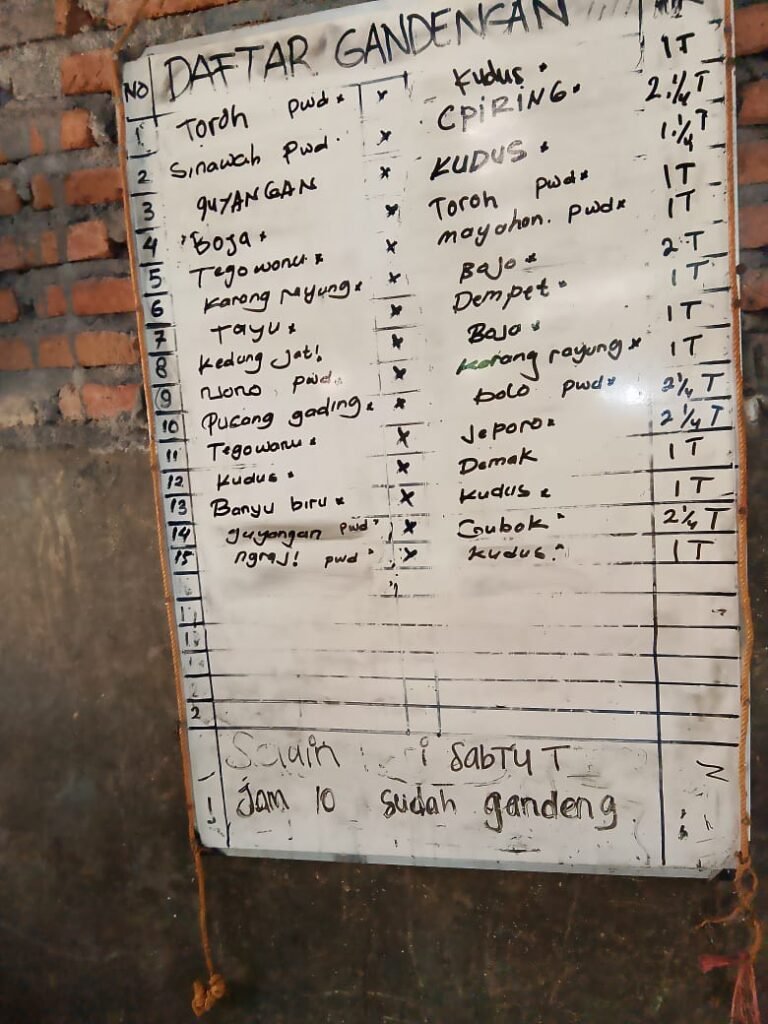 NO DAFTAR GANDENGAN
1 Toroh pwd x Kudus 1 T
2 Sinawah pwd x CPIRING 2 1/4 T
3 guYANGAN x KUDUS 1 1/4 T
4 Boja x Toroh pwd 1 T
5 Tegowanu x mayahan. pwd 1 T
6 Karang rayung x Bajo 2 T
7 Tayu x Dempet 1 T
8 Kedung Jati x Bajo 1 T
9 pwd x Karang rayung 1 T
10 Pucang gading x bolo pwd 2 1/4 T
11 Tegowanu x Jeporo 2 1/4 T
12 Kudus x Demak 1 T
13 Banyu biru x Kudus 1 T
14 guyangan pwd x Gubok 2 1/4 T
15 ngraji pwd x Kudus 1 T
2
Selain i SABTU T
Jam 10 sudah gandeng